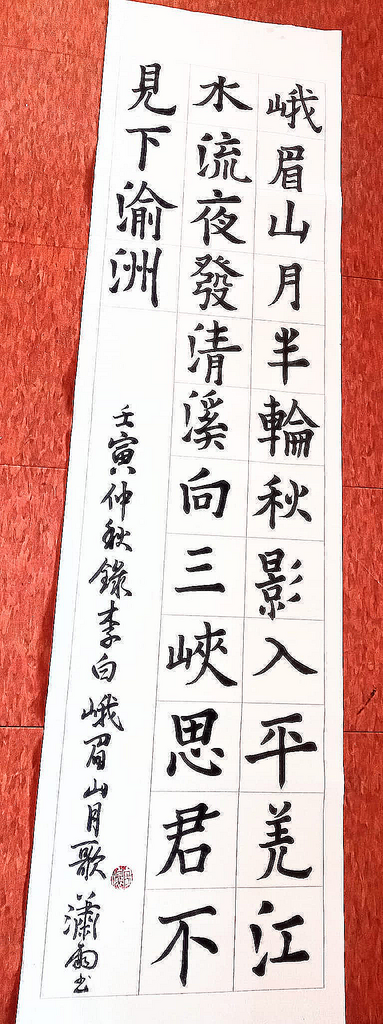 峨眉山月半輪秋影入平羌江
水流夜發清溪向三峽思君不
見下渝洲
壬寅仲秋錄李白峨眉山月歌 瀟雨书